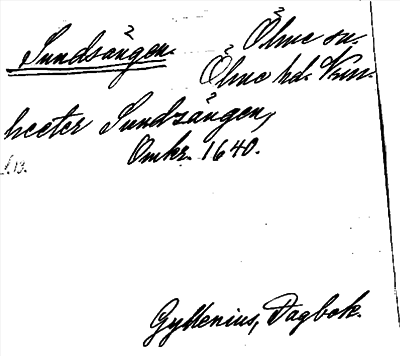 Sundsången. Ölme sn.
Ölme hd. Vrm.
heeter Sundzången,
Omkr. 1640.
s. 13.
Gyllenius, Dagbok.